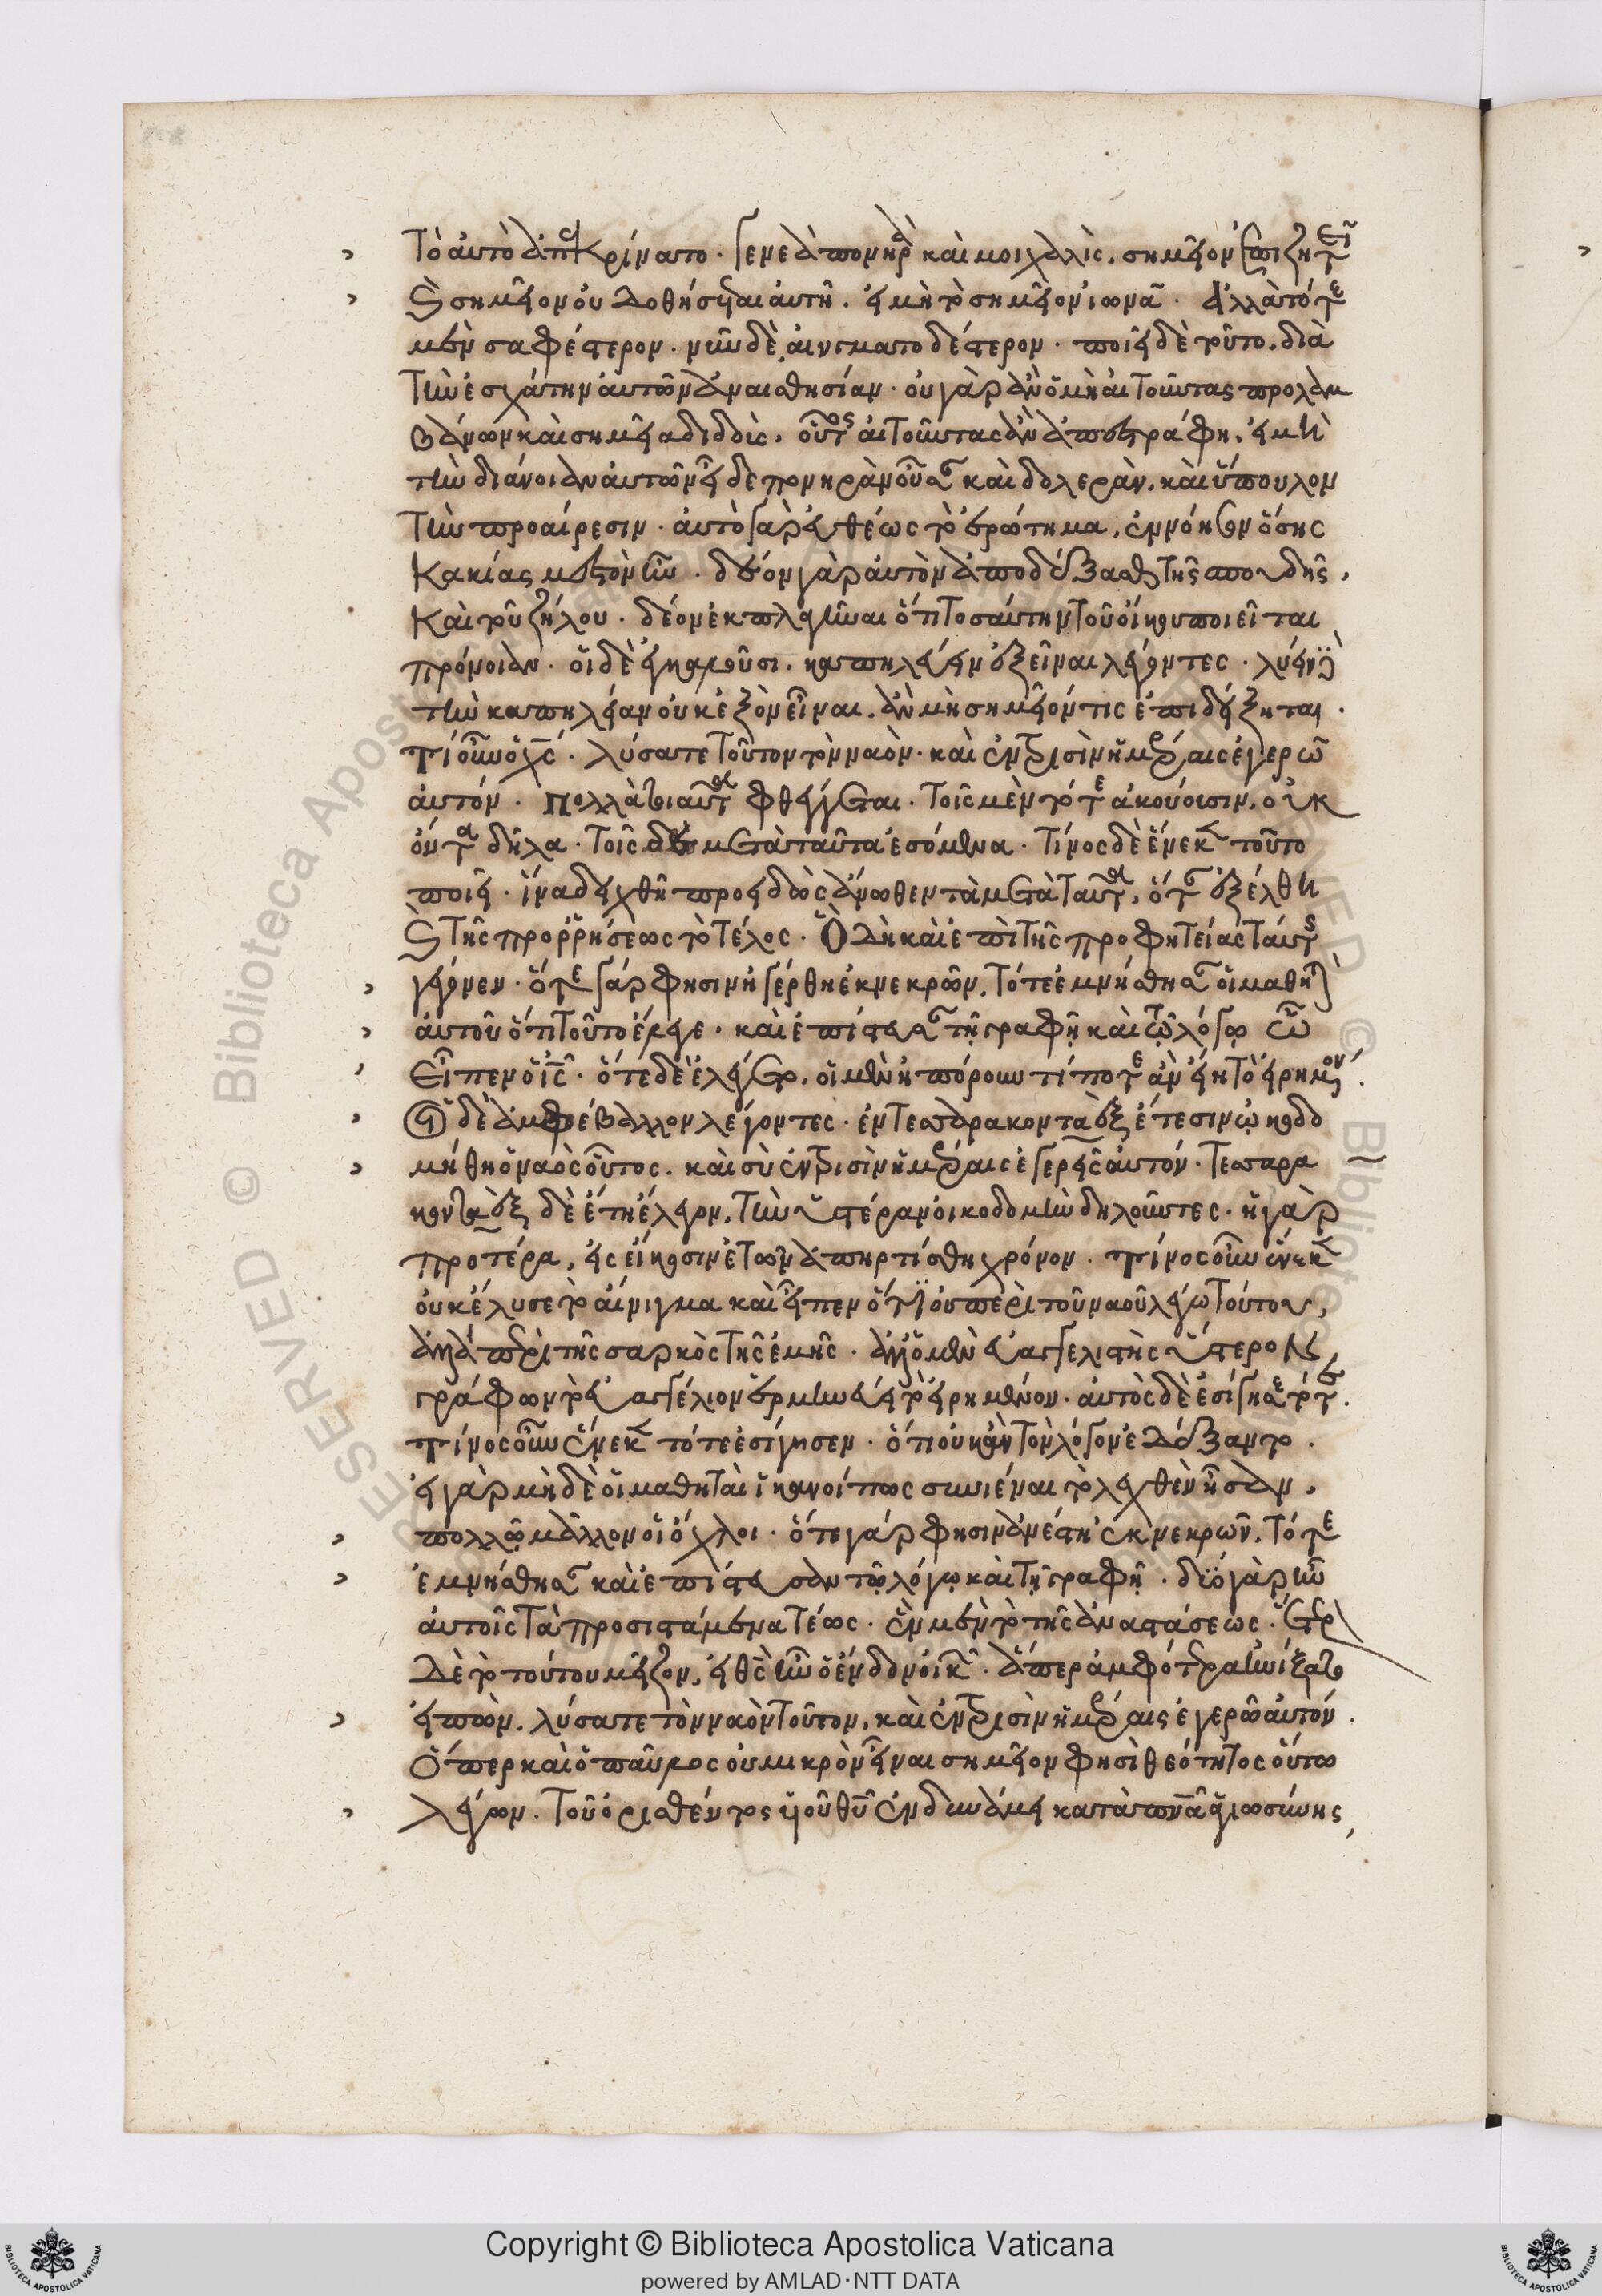 Τὸ αὐτὸ ἀπεκρίνατο. γενεὰ πονηρὰ καὶ μοιχαλὶς, σημεῖον ἐπιζητεῖ
καὶ σημεῖον οὐ δοθήσεται αὐτῆ. εἰ μὴ τὸ σημεῖον ἰωνᾶ. ἀλλὰ τότε
μὲν σαφέστερον. νῦν δὲ αἰνιγματοδέστερον. ποιεῖ δὲ τοῦτο, διὰ
τὴν ἐσχάτην αὐτῶν ἀναισθησίαν. οὐ γὰρ ἂν ὁ μὴ αἰτοῦντας προλαμ
βάνων καὶ σημεῖα διδοὺς, οὗτος αἰτοῦντας ἂν ἀπεστράφη, εἰ μὴ
τὴν διάνοιαν αὐτῶν εἶδε πονηρὰν οὖσαν καὶ δολερὰν, καὶ ὕπουλον
τὴν προαίρεσιν. αὐτὸ γὰρ εὐθέως τὸ ἐρώτημα, ἐννόησον ὅσης
κακίας μεστὸν ἦν. δέον γὰρ αὐτὸν ἀποδέξασθαι τῆς σπουδῆς,
καὶ τοῦ ζήλου. δέον ἐκπλαγῆναι ὅτι τοσαύτην τοῦ οἴκου ποιεῖται
πρόνοιαν. οἱ δὲ ἐγκαλοῦσι, καπηλεύειν ἐξεῖναι λέγοντες. λύειν δὲ
τὴν καπηλείαν οὐκ ἐξὸν εἶναι, ἂν μὴ σημεῖόν τις ἐπιδείξηται.
τί οὖν ὁ χς. λύσατε τοῦτον τὸν ναὸν. καὶ ἐν τρισὶν ἡμέραις ἐγερῶ
αὐτόν. πολλὰ τοιαῦτα φθέγγεται. τοῖς μὲν τότε ἀκούουσιν, οὐκ
ὄντα δῆλα. τοῖς δὲ μετὰ ταῦτα ἐσόμενα. τίνος δὲ ἕνεκεν τοῦτο
ποιεῖ. ἵνα δειχθῆ προειδὼς ἄνωθεν τὰ μετὰ ταῦτα, ὅταν ἐξέλθη
καὶ τῆς προρρήσεως τὸ τέλος. ὃ δὴ καὶ ἐπὶ τῆς προφητείας ταύτης
γέγονεν. ὅτε γάρ φησιν ἠγέρθη ἐκ νεκρῶν, τότε ἐμνήσθησαν οἱ μαθηταὶ
αὐτοῦ ὅτι τοῦτο ἔλεγε. καὶ ἐπίστευσαν τῆ γραφῆ καὶ τῶ λόγω ὧ
εἶπεν ὁ ις. ὅτε δὲ ἐλέγετο, οἱ μὲν ἠπόρουν τί ποτε ἂν εἴη τὸ εἰρημένον.
οἱ δὲ ἀμφέβαλλον λέγοντες. ἐν τεσσαράκοντα ἓξ ἔτεσιν ὠκοδο
μήθη ὁ ναὸς οὗτος, καὶ σὺ ἐν τρισὶν ἡμέραις ἐγερεῖς αὐτόν. τεσσαρα
κονταὲξ δὲ ἔτη ἔλεγον, τὴν ὑστέραν οἰκοδομὴν δηλοῦντες. ἡ γὰρ
προτέρα, εἰς εἴκοσιν ἐτῶν ἀπηρτίσθη χρόνον. τίνος οὖν ἕνεκεν
οὐκ ἔλυσε τὸ αἴνιγμα καὶ εἶπεν ὅτι οὐ περὶ τοῦ ναοῦ λέγω τούτου,
ἀλλὰ περὶ τῆς σαρκὸς τῆς ἐμῆς. ἀλλ' ὁ μὲν εὐαγγελιστὴς ὕστερον
γράφων τὸ εὐαγγέλιον ἑρμηνεύει τὸ εἰρημένον. αὐτὸς δὲ ἐσίγησε τότε.
τίνος οὖν ἕνεκεν τότε ἐσίγησεν. ὅτι οὐκ ἂν τὸν λόγον ἐδέξαντο.
εἰ γὰρ μὴ δὲ οἱ μαθηταὶ ἱκανοί πως συνιέναι τὸ λεχθὲν ἦσαν,
πολλῶ μᾶλλον οἱ ὄχλοι. ὅτε γάρ φησιν ἀνέστη ἐκ νεκρῶν, τότε
ἐμνήσθησαν καὶ ἐπίστευσαν τῶ λόγω καὶ τῆ γραφῆ. δύο γὰρ ἦν
αὐτοῖς τὰ προσιστάμενα τέως. ἓν μὲν τὸ τῆς ἀναστάσεως. ἕτερον
δὲ τὸ τούτου μεῖζον, εἰ θς ἦν ὁ ἔνδον οἰκῶν. ἅπερ ἀμφότερα ἠνίξατο
εἰπὼν, λύσατε τὸν ναὸν τοῦτον, καὶ ἐν τρισὶν ἡμέραις ἐγερῶ αὐτόν.
ὅπερ καὶ ὁ παῦλος οὐ μικρὸν εἶναι σημεῖον φησὶ θεότητος οὕτω
λέγων. τοῦ ὁρισθέντος υἱοῦ θυ ἐν δυνάμει κατὰ πνα ἁγιωσύνης,